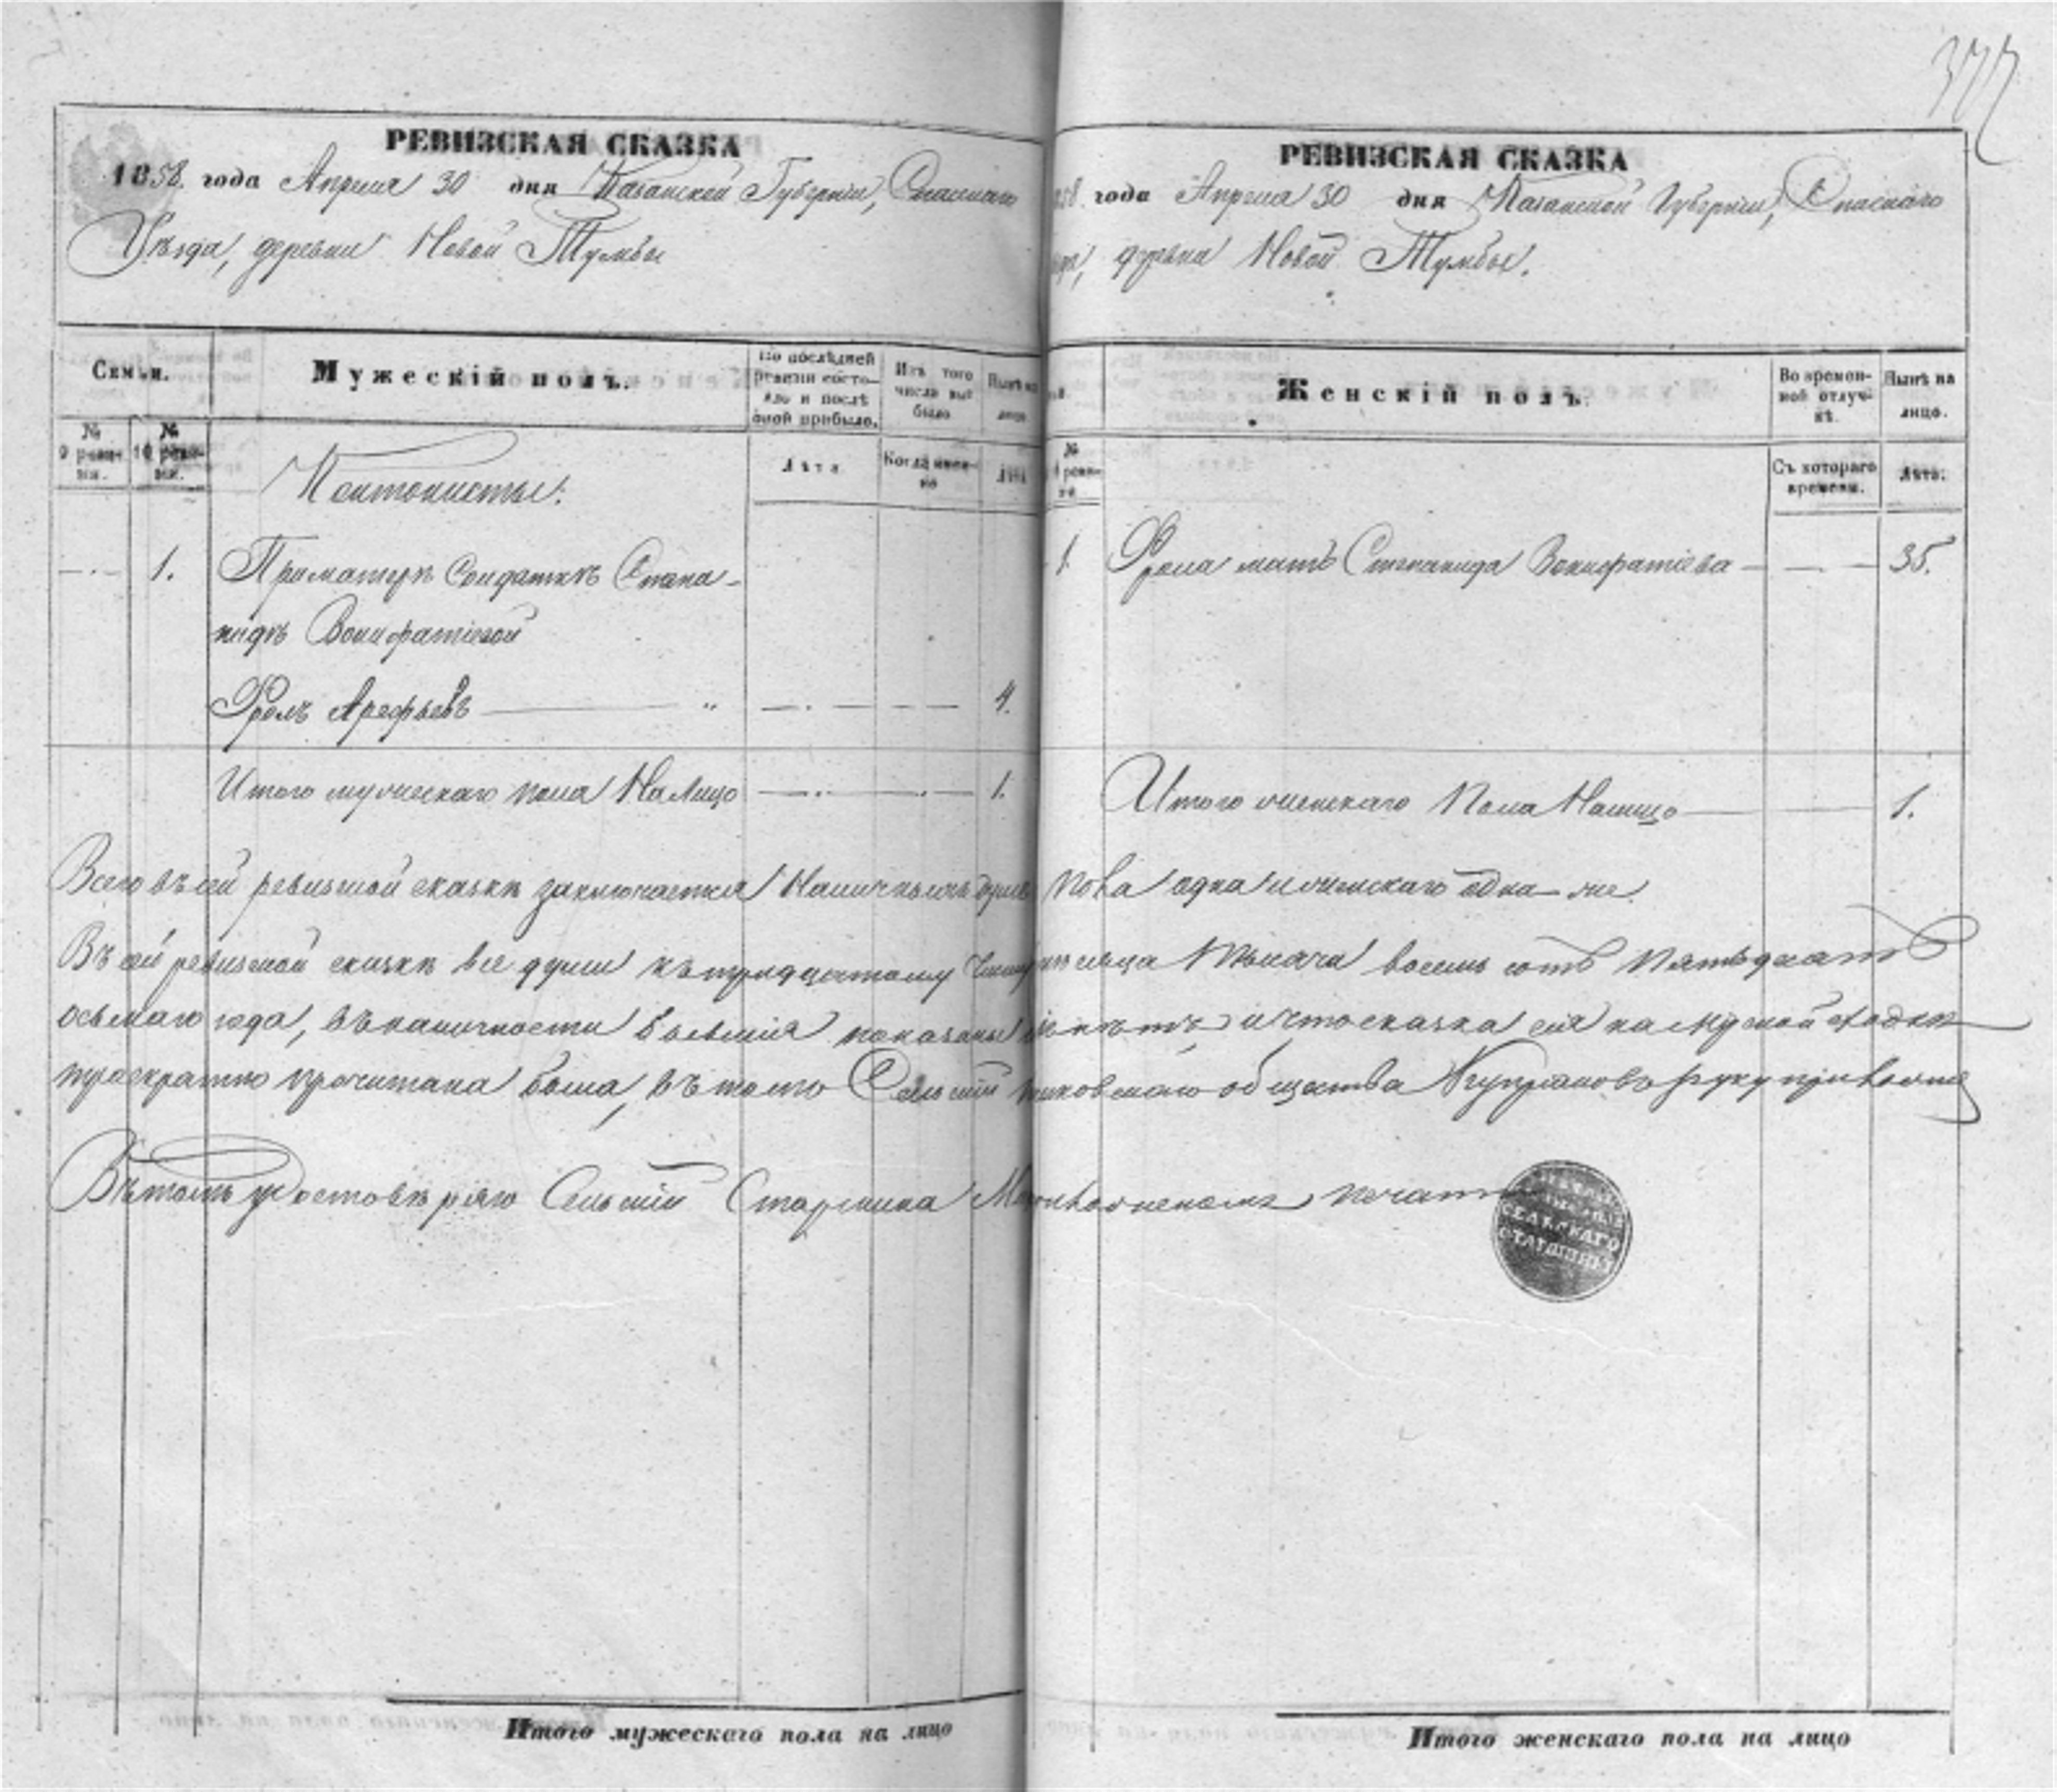 377
РЕВИЗСКАЯ СКАЗКА
1858. года Апреля 30 дня Казанской Губерніи, Спасскаго
Уѣзда, деревни Новой Тумбы
Семьи.
Мужескій полъ.
По послѣдней ревизіи состояло и послѣ оной прибыло.
Изъ того числа выбыло
Нынѣ на лицо
№ 9 ревизіи.
№ 10 ревизіи.
Лѣта
Когда именно
Лѣта
Кантонисты:
1. При матери Солдаткѣ Степа-
нидѣ Вонифатіевой
Фролъ Арефьевъ 4.
Итого мужескаго пола На Лицо 1.
РЕВИЗСКАЯ СКАЗКА
858. года Апреля 30 дня Казанской Губерніи, Спаскаго
деревни Новой Тумбы.
Женскій полъ.
Во временной отлучкѣ.
Нынѣ на лицо.
№ ревизіи
Съ котораго времени.
Лѣта.
1. Фрола мать Степанида Вонифатіева 35.
Итого женскаго Пола Налицо 1.
Всего въ сей ревизской сказкѣ заключается Наличныхъ душъ пола одна и женскаго одна же.
Въ сей ревизской сказкѣ все души къ тридцатому числу месяца Тысяча восемь сотъ Пятьдесятъ
осьмаго года, въ наличности бывшія показаны и что сказка сія на Мірской сходкѣ
троекратно прочитана была, въ томъ Сельскій общества Купріяновъ руку приложилъ
Въ томъ удостовѣряю Сельскій Старшина приложеніемъ печати
СЕЛЬСКАГО
СТАРШИНЫ
Итого мужескаго пола на лицо
Итого женскаго пола на лицо